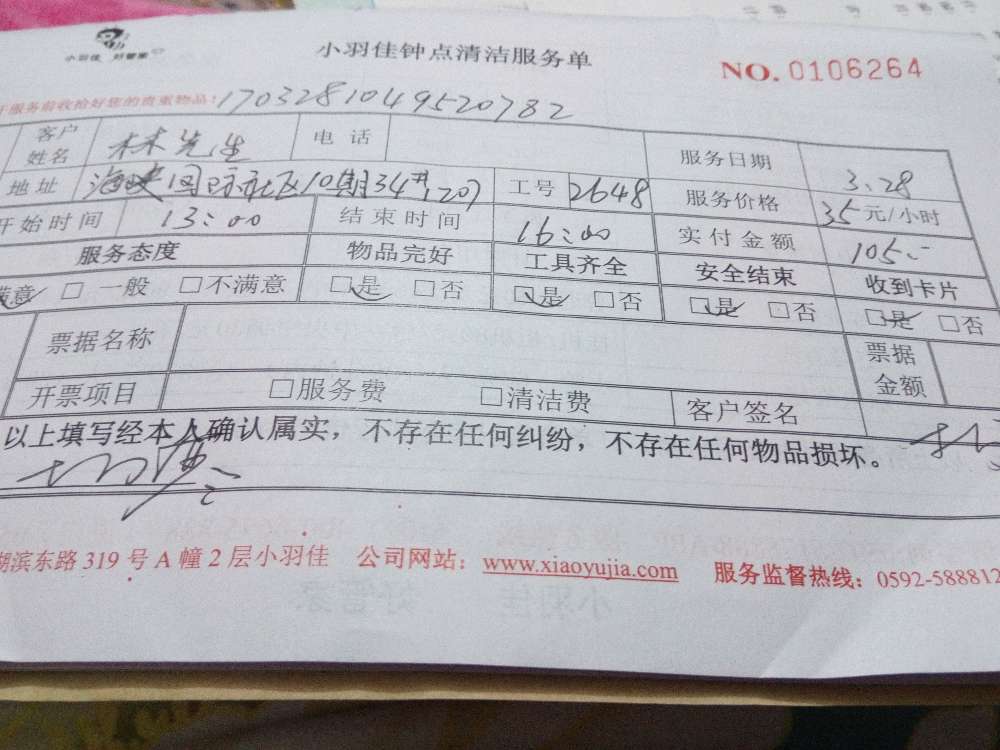 小羽佳 好管家
小羽佳钟点清洁服务单
NO.0106264
服务前收拾好您的贵重物品:1703281049520782
客户姓名 林先生 电话 服务日期 3.28
地址 10期34#,207 工号 2648 服务价格 35元/小时
开始时间 13:00 结束时间 16:00 实付金额 105.-
服务态度 物品完好 工具齐全 安全结束 收到卡片
满意 □一般 □不满意 □是 □否 □是 □否 □是 □否 □是 □否
票据名称 票据金额
开票项目 □服务费 □清洁费 客户签名
以上填写经本人确认属实,不存在任何纠纷,不存在任何物品损坏。
湖滨东路319号A幢2层小羽佳 公司网站:www.xiaoyujia.com 服务监督热线:0592-588812